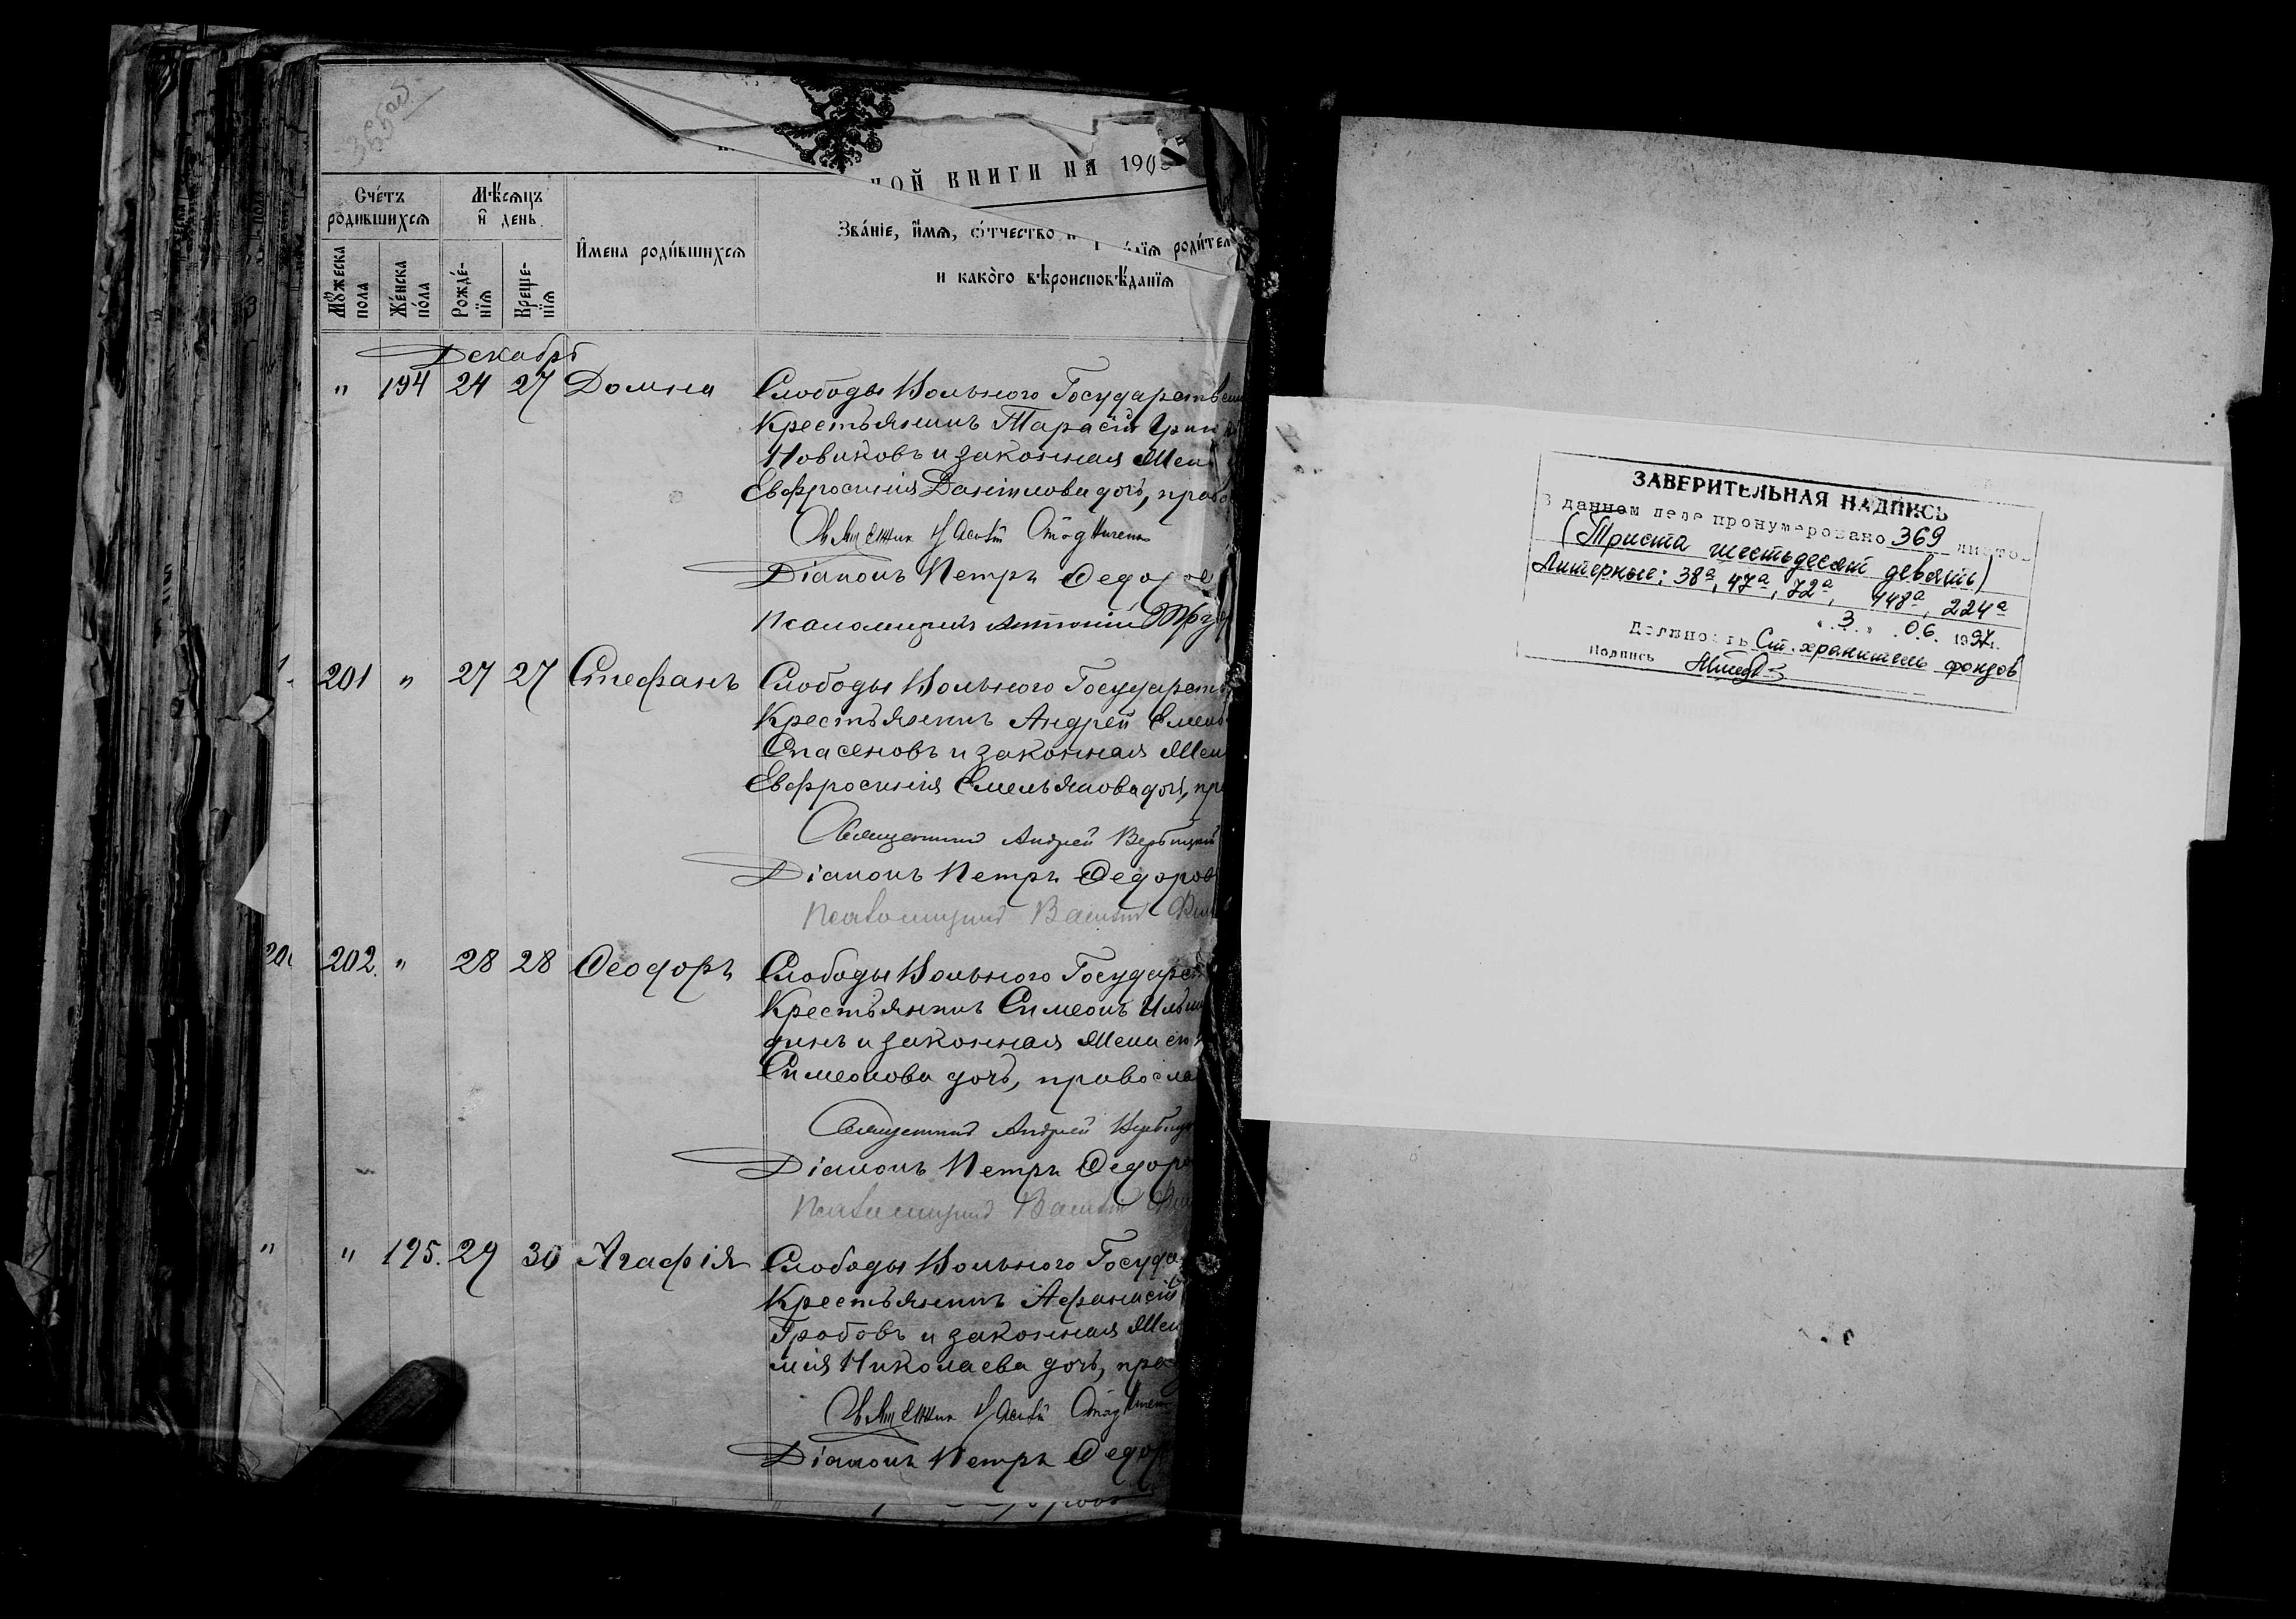 365об
НОЙ КНИГИ НА 190
Сче́тъ родившихсѧ
Мѣ́сѧцъ и҆ день
И҆мена роди́вшихсѧ
Зва́ніе, и҆́мѧ, ѻ҆́тчество
и како̀го вѣроисповѣ́данїѧ
Мꙋ́жеска пола
Же́нска по́ла
Рожде́-нїѧ
Креще-нїѧ
Декабрь
" 194 24 27 Домна Слободы Вольного Государствен
Крестьянинъ Тарасій Григ
Новиковъ и законная жен
Евфросинія Даніилова дочь, право
Священник Стадниченко
Діаконъ Петръ Ѳедоров
Псаломщикъ Антоній
201 " 27 27 Стефанъ Слободы Вольного Государств
Крестьянинъ Андрей Емель
Спасеновъ и законная жен
Евфросинія Емельянова дочь, пр
Священникъ Андрей Вербицкій
Діаконъ Петръ Ѳедоров
Псаломщикъ Василій
202. " 28 28 Ѳеодоръ Слободы Вольного Государст
Крестьянинъ Симеонъ Ильин
динъ и законная жена его
Симеонова дочь, правосла
Священникъ Андрей Вербицк
Діаконъ Петръ Ѳедоро
Псаломщикъ Василій
" 195. 29 30 Агафія Слободы Вольного Госуда
Крестьянинъ Афанасій
Гробовъ и законная жен
мія Николаева дочь, прав
Священник Стадничен
Діаконъ Петръ Ѳедор
ЗАВЕРИТЕЛЬНАЯ НАДПИСЬ
В данном деле пронумеровано 369 листов
(Триста шестьдесят девять)
Литерные: 38а, 47а, 72а, 148а, 224а
"3" 06. 1997г.
Должность Ст. хранитель фондов
Подпись